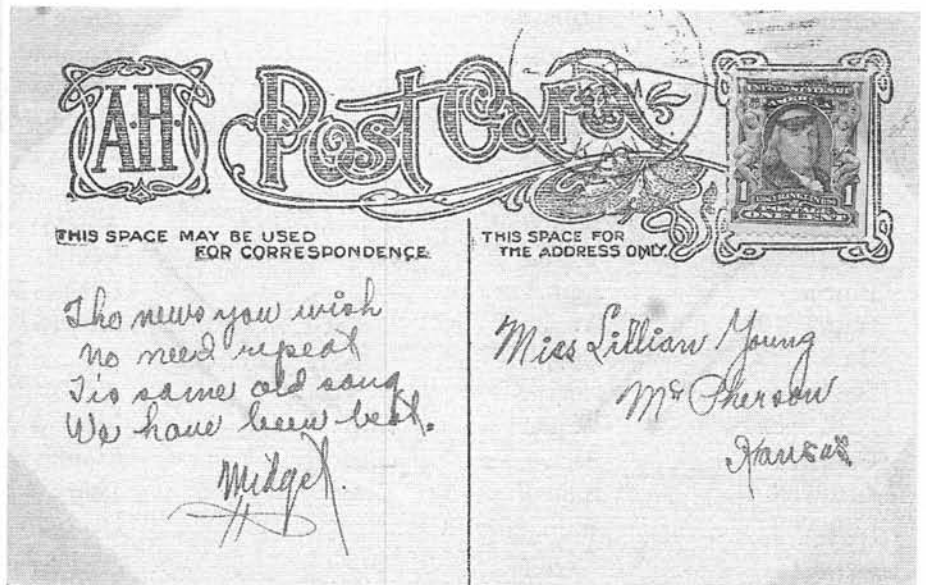 A·H·
Post Card
KAN.
1 1
ONE CENT
THIS SPACE MAY BE USED
FOR CORRESPONDENCE.
THIS SPACE FOR
THE ADDRESS ONLY.
Tho news you wish
no need repeat
Tis same old song
We have been beat.
Midget.
Miss Lillian Young
McPherson
Kansas